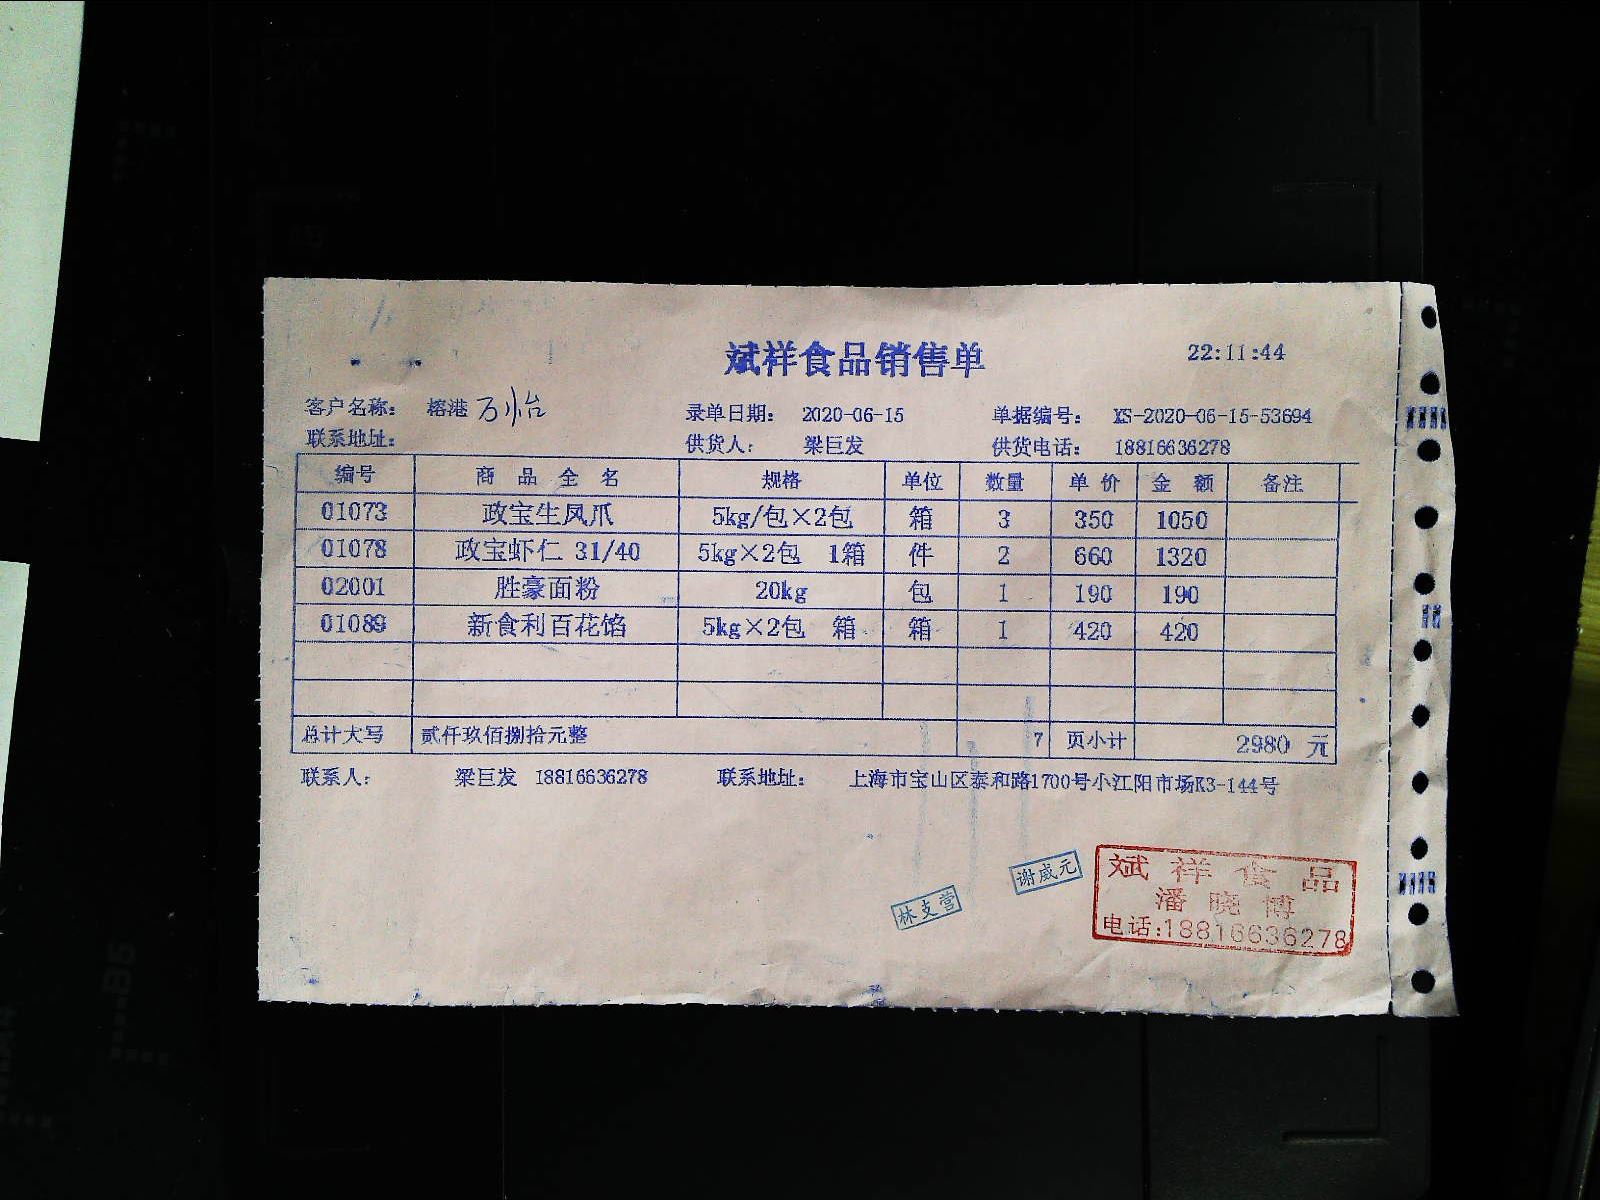 斌祥食品销售单 22:11:44
客户名称: 榕港 万怡 录单日期: 2020-06-15 单据编号: XS-2020-06-15-53694
联系地址: 供货人: 梁巨发 供货电话: 18816636278
编号 商品全名 规格 单位 数量 单价 金额 备注
01073 政宝生凤爪 5kg/包×2包 箱 3 350 1050
01078 政宝虾仁 31/40 5kg×2包 1箱 件 2 660 1320
02001 胜豪面粉 20kg 包 1 190 190
01089 新食利百花馅 5kg×2包 箱 箱 1 420 420
总计大写 贰仟玖佰捌拾元整 7 页小计 2980 元
联系人: 梁巨发 18816636278 联系地址: 上海市宝山区泰和路1700号小江阳市场K3-144号
斌祥食品
潘晓博
电话:18816636278
谢威元
林支营